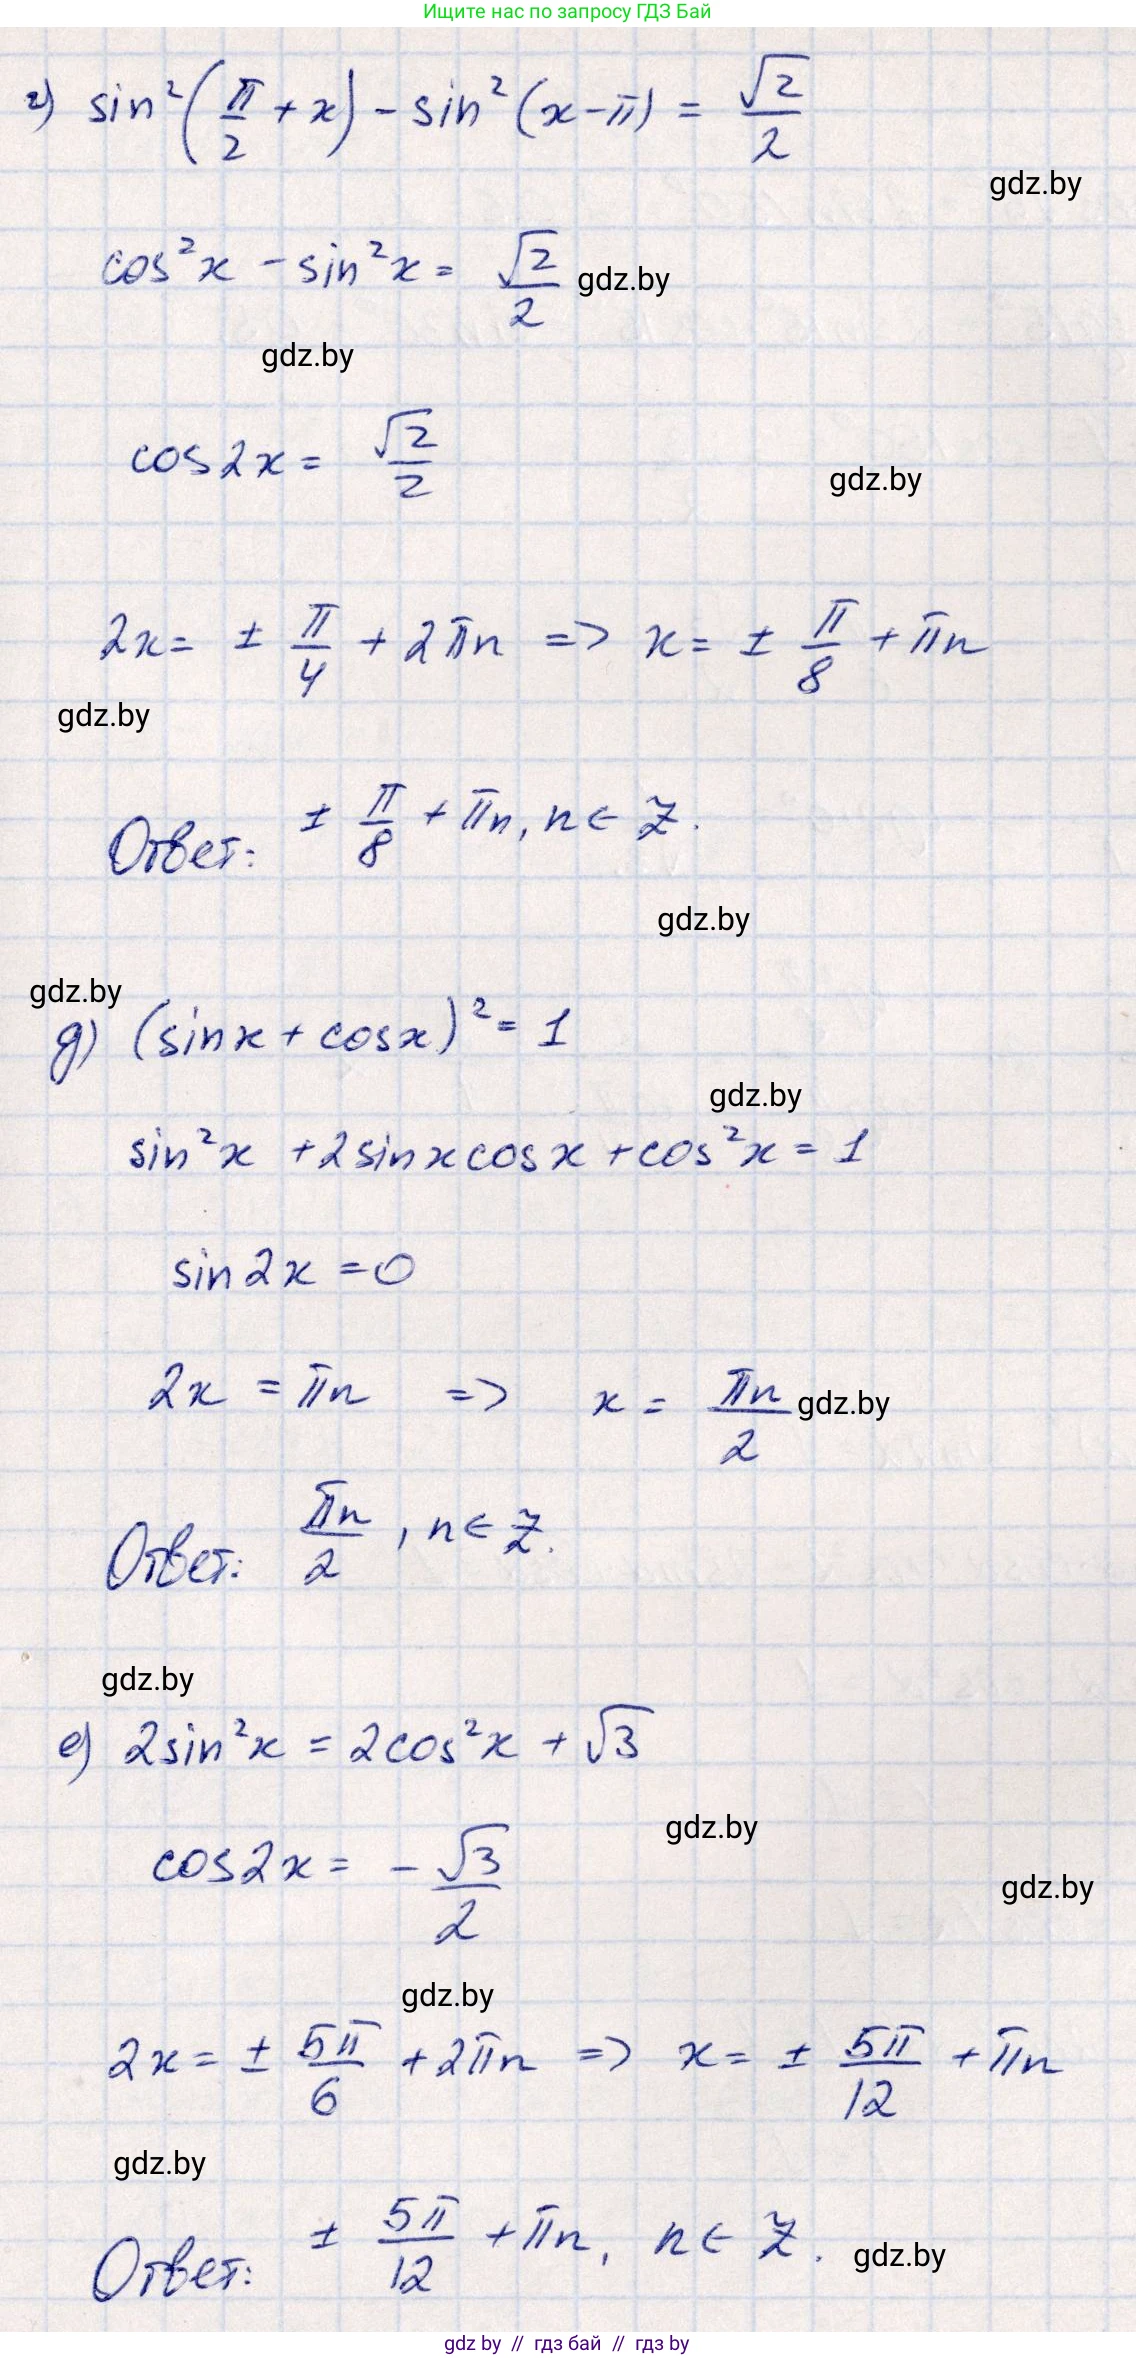 Ищите нас по запросу ГДЗ Бай
г) sin²(π/2 + x) - sin²(x-π) = √2/2
gdz.by
cos²x - sin²x = √2/2 gdz.by
gdz.by
cos2x = √2/2
gdz.by
2x = ± π/4 + 2πn => x = ± π/8 + πn
gdz.by
Ответ: ± π/8 + πn, n ∈ Z.
gdz.by
gdz.by
д) (sinx + cosx)² = 1
gdz.by
sin²x + 2sinxcosx + cos²x = 1
sin2x = 0
2x = πn => x = πn/2 gdz.by
Ответ: πn/2, n ∈ Z.
gdz.by
е) 2sin²x = 2cos²x + √3
gdz.by
cos2x = - √3/2
gdz.by
gdz.by
2x = ± 5π/6 + 2πn => x = ± 5π/12 + πn
gdz.by
Ответ: ± 5π/12 + πn, n ∈ Z.
gdz.by
gdz by // гдз бай // гдз by